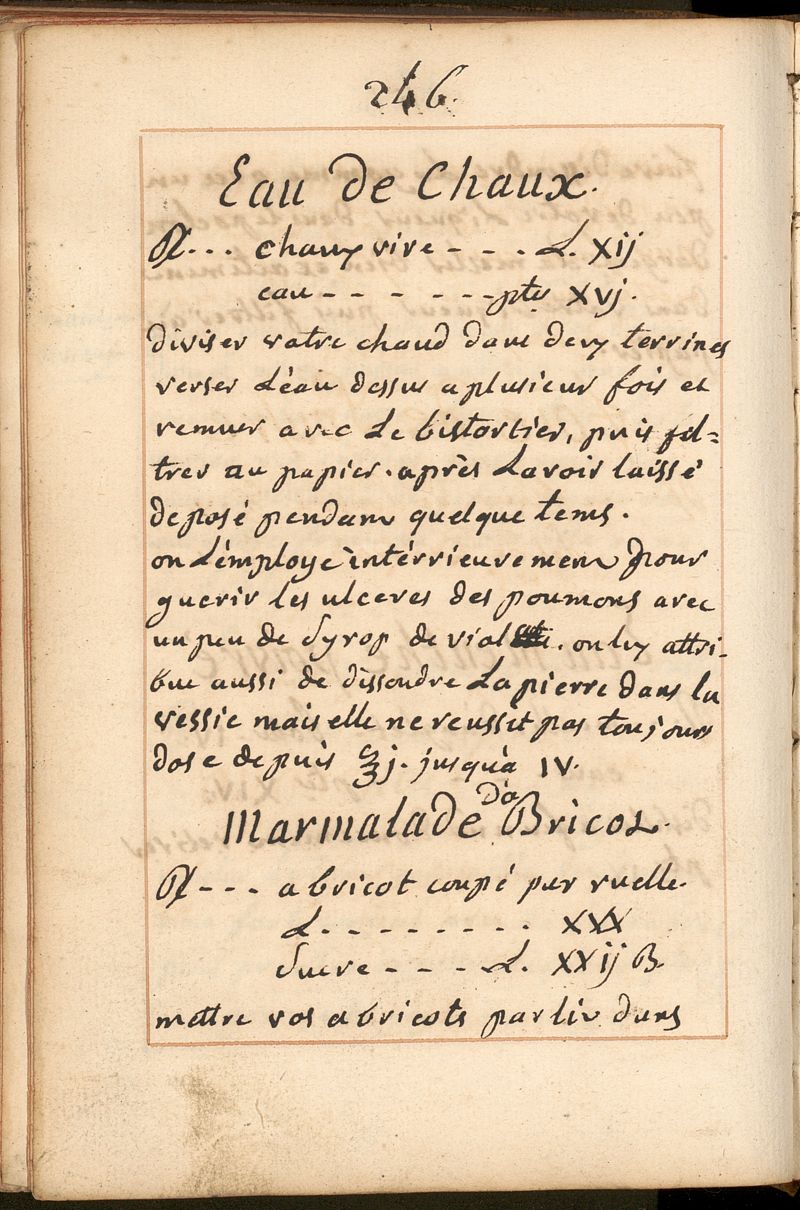 246.
Eau de Chaux.
℞... chaux vive - - . L. xij
eau - - - - - - ptes xvj.
diviser votre chaud dans deux terrines
verser L'éau dessus a plusieur fois et
remuer avec Le bistortier, puis fil=
trer au papier. après Lavoir laissé
deposé pendant quelque tems.
on L'émploye intérrieurement pour
guerir les ulceres des poumons avec
un peu de Syrop de violette. on luy attri-
bue aussi de dissoudre La pierre dans la
vessie mais elle ne reussit pas toujours
dose depuis ℥j. jusqu'à IV.
Marmalade d'a Bricot.
℞ - - - abricot coupé par ruelle.
L. - - - - - - - . XXX
Sucre - - - L. XXij ß
mettre vos abricots par lit dans